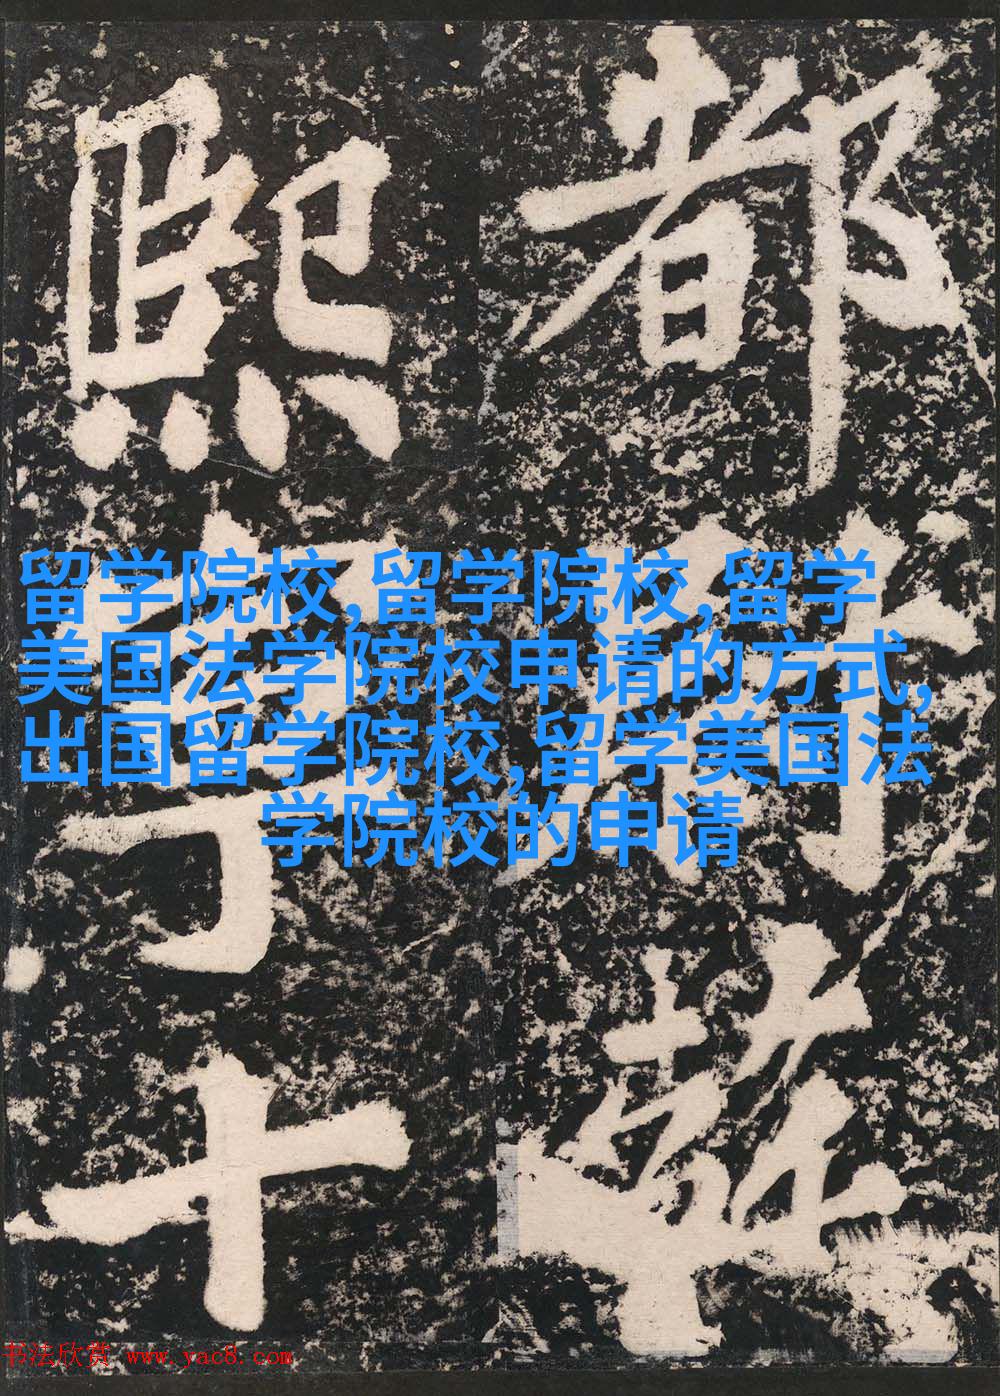 都
熙寧十
留学院校,留学院校,留学
美国法学院校申请的方式,
出国留学院校,留学美国法
学院校的申请
书法欣赏 www.yac8.com